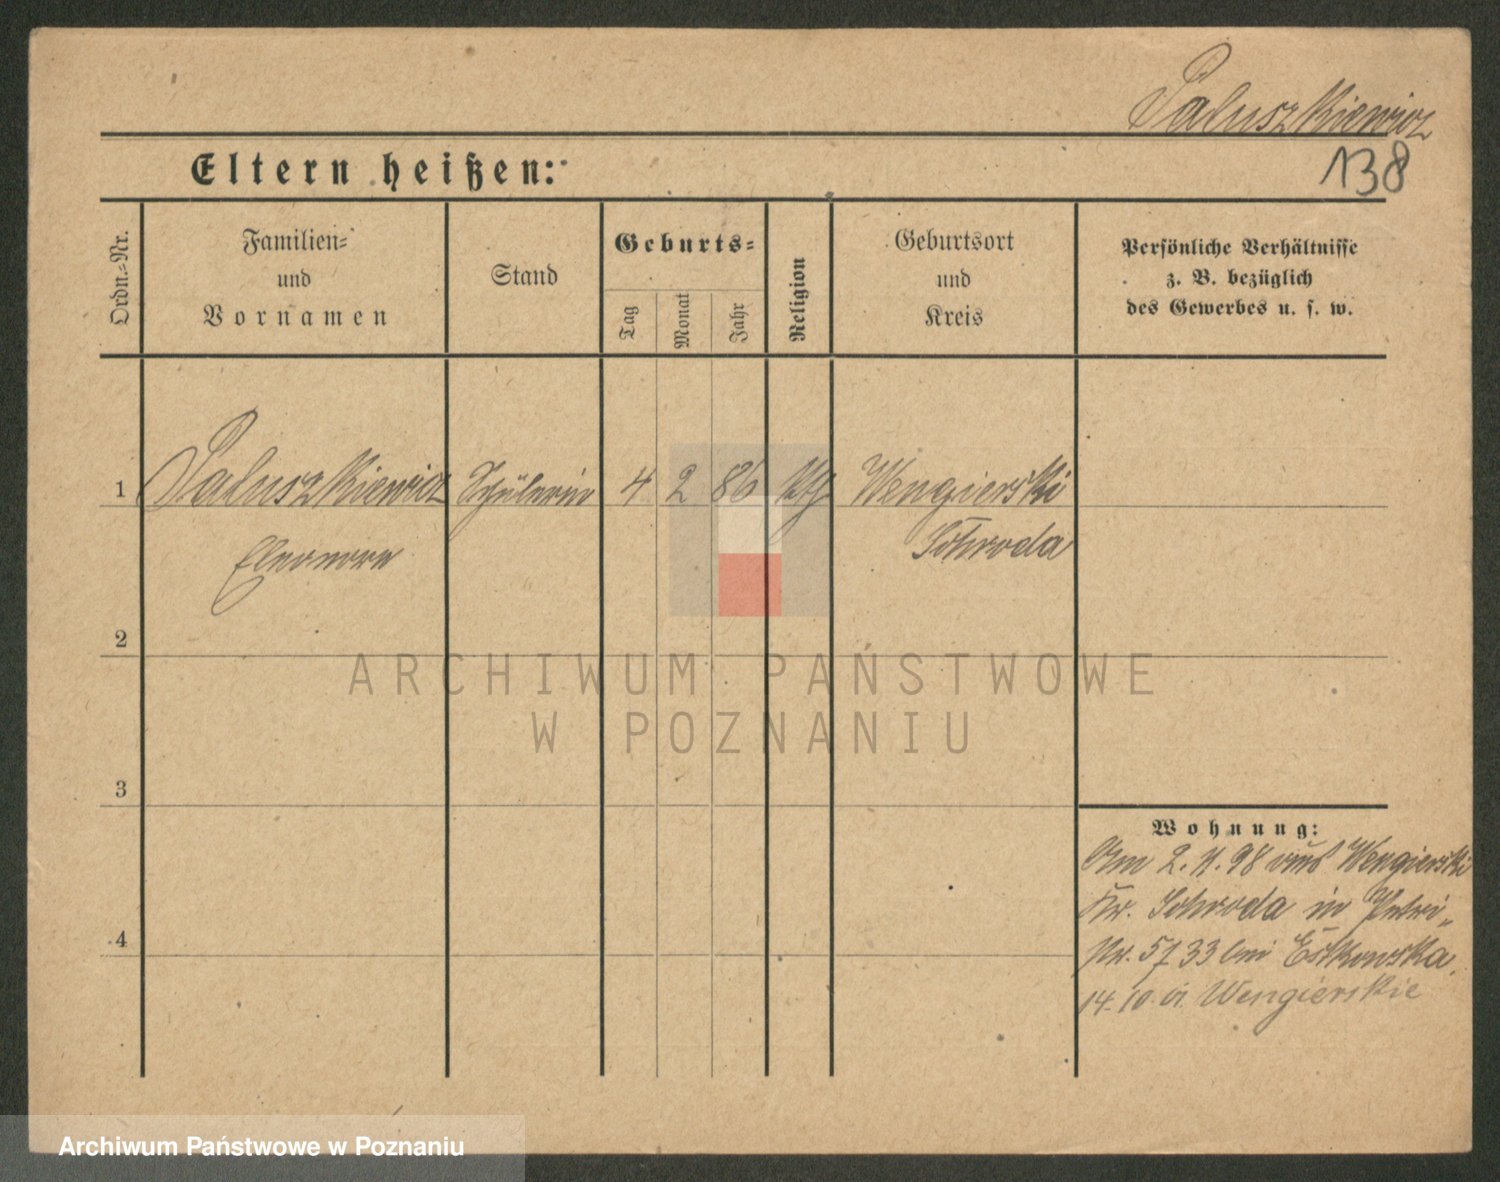 Paluszkiewicz
138
Eltern heißen:
Ordn.-Nr.
Familien-
und
Vornamen
Stand
Geburts-
Tag
Monat
Jahr
Religion
Geburtsort
und
Kreis
Persönliche Verhältnisse
z. B. bezüglich
des Gewerbes u. s. w.
1 Paluszkiewicz Schülerin 4 2 86 Wengierski
Eleonore Schroda
2
3
4
Wohnung:
Am 2. 11. 98 aus Wengierski
Kr. Schroda in Petri-
Nr. 5 / 33 bei Estkowska
14. 10. 01 Wengierskie
ARCHIWUM PAŃSTWOWE
W POZNANIU
Archiwum Państwowe w Poznaniu